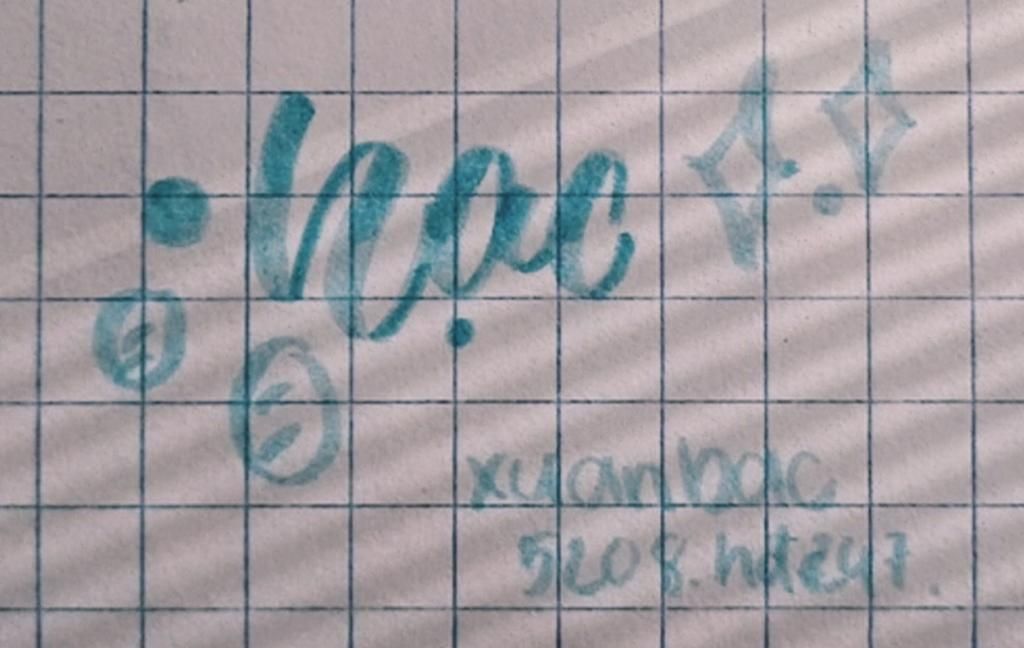 hạc
xuanbac
5208.hdt247.